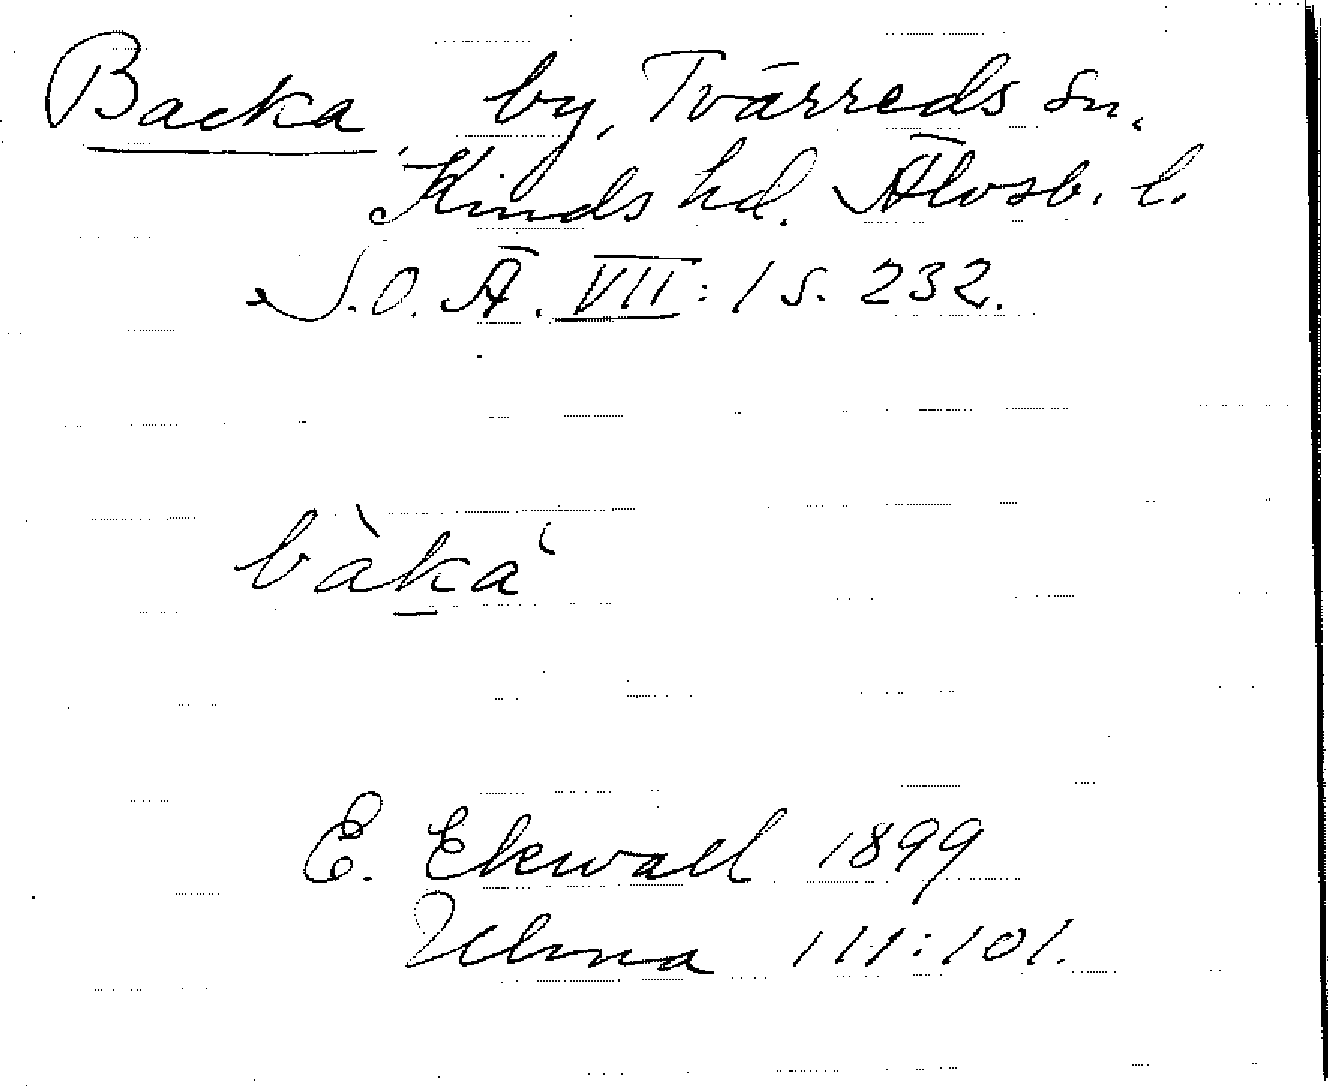 Backa, by, Tvärreds sn.
Kinds hd. Älvsb. l.
S.O.Ä. VII:1 s. 232.
bàka
E. Ekwall 1899
Ulma 111:101.